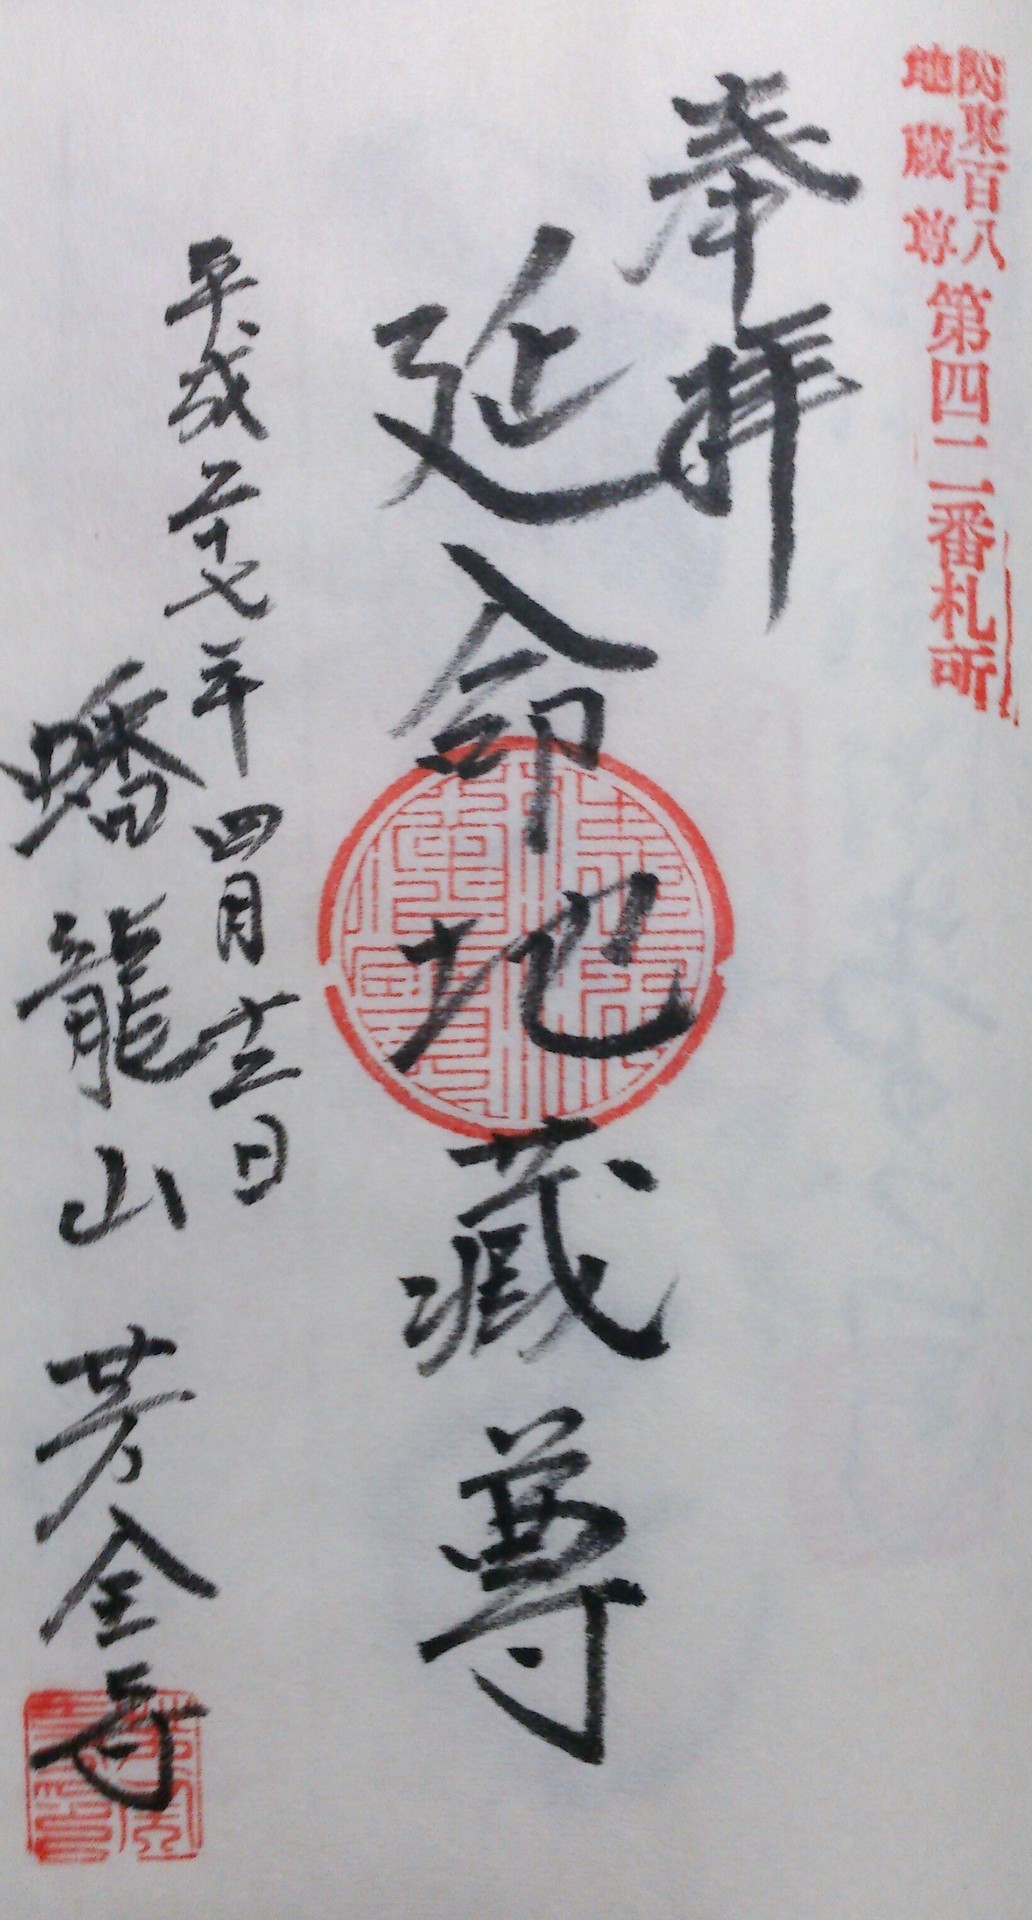 関東百八
地蔵尊
第四二番札所
奉拝
延命地蔵尊
平成二十七年四月十三日
蟠龍山 芳全寺